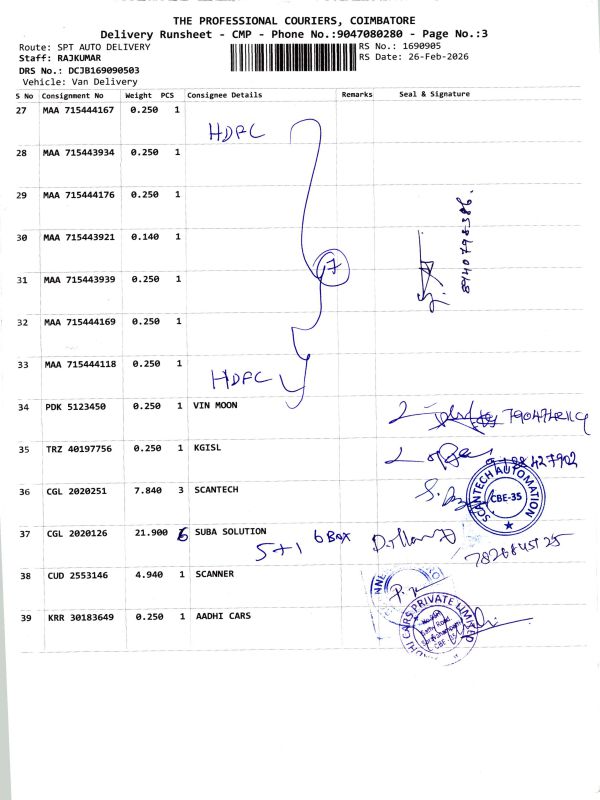 THE PROFESSIONAL COURIERS, COIMBATORE
Delivery Runsheet - CMP - Phone No.:9047080280 - Page No.:3
Route: SPT AUTO DELIVERY
RS No.: 1690905
Staff: RAJKUMAR
RS Date: 26-Feb-2026
DRS No.: DCJB169090503
Vehicle: Van Delivery
S No Consignment No Weight PCS Consignee Details Remarks Seal & Signature
27 MAA 715444167 0.250 1
HDFC
28 MAA 715443934 0.250 1
29 MAA 715444176 0.250 1
30 MAA 715443921 0.140 1
8940798386.
7
31 MAA 715443939 0.250 1
32 MAA 715444169 0.250 1
33 MAA 715444118 0.250 1
HDFC
34 PDK 5123450 0.250 1 VIN MOON
35 TRZ 40197756 0.250 1 KGISL
36 CGL 2020251 7.840 3 SCANTECH
SCANTECH AUTOMATION
CBE-35
37 CGL 2020126 21.900 6 SUBA SOLUTION
5+1 6 Box
38 CUD 2553146 4.940 1 SCANNER
39 KRR 30183649 0.250 1 AADHI CARS
AADHI CARS PRIVATE LIMITED
CBE-35